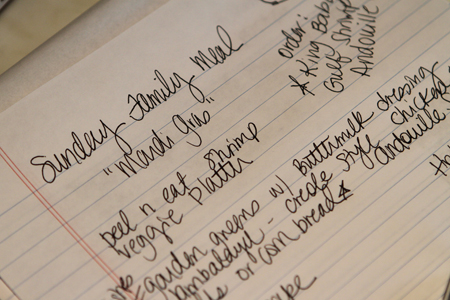 Sunday Family Meal
"Mardi Gras"
order:
* King Baby
Gulf Shrimp
Andouille
peel n eat shrimp
veggie platter
garden greens w/ buttermilk dressing
Jambalaya - creole style chicken &
andouille
or corn bread